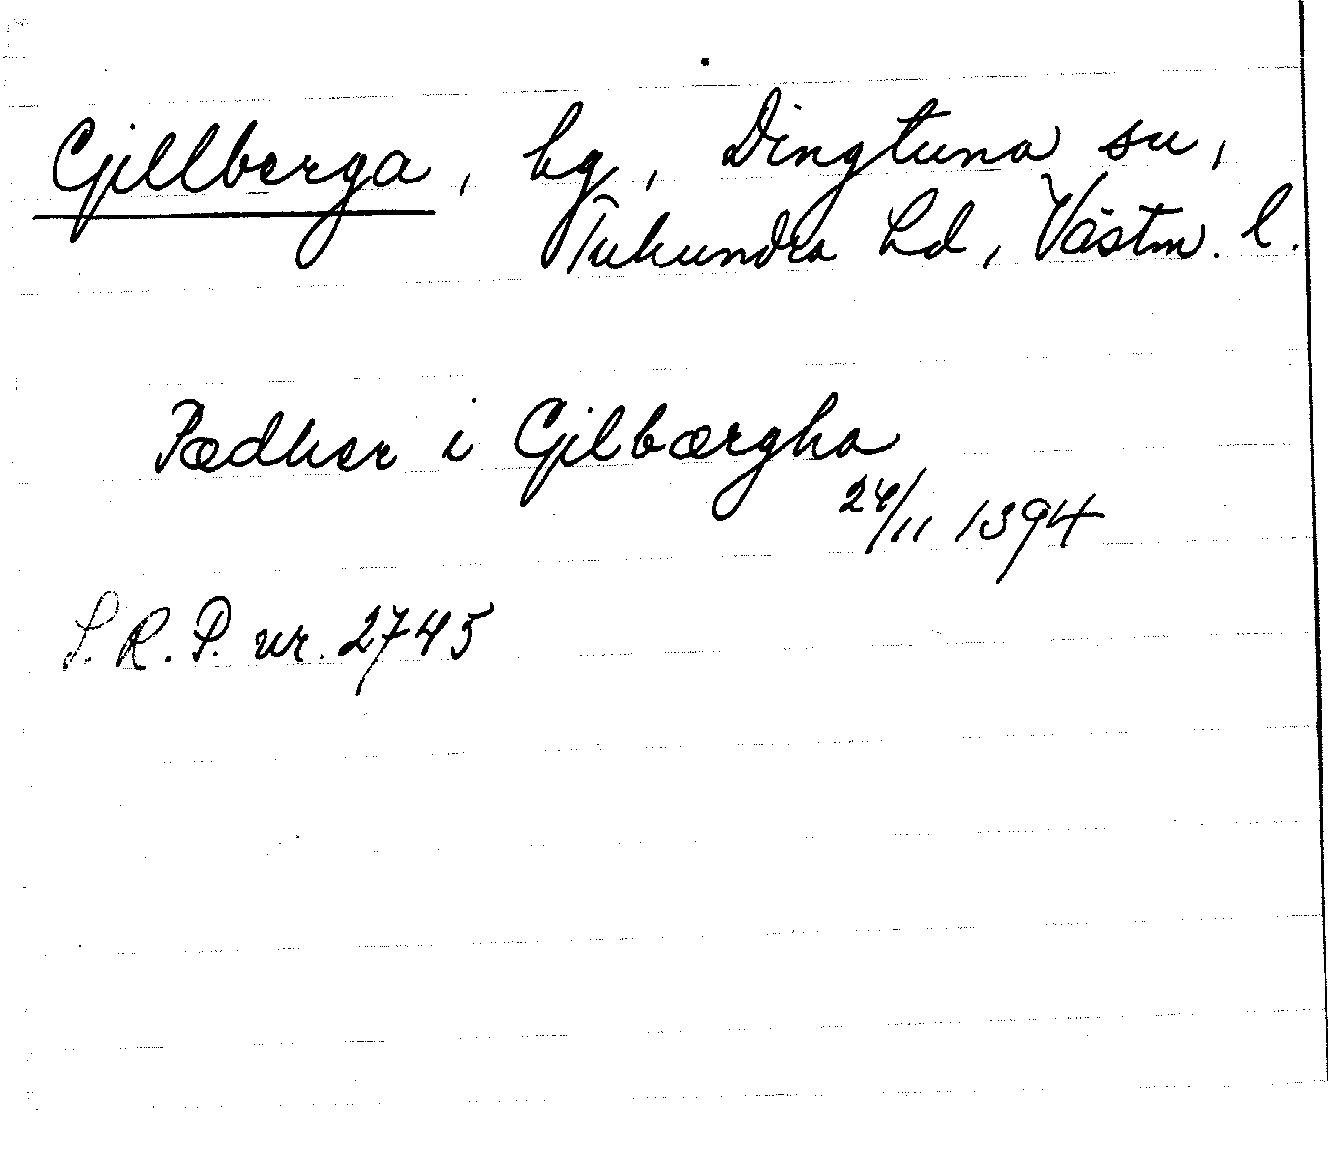 Gillberga, by, Dingtuna sn,
Tuhundra hd, Västm. l.
Pædher i Gilbærgha
24/11 1394
S.R.P. nr. 2745